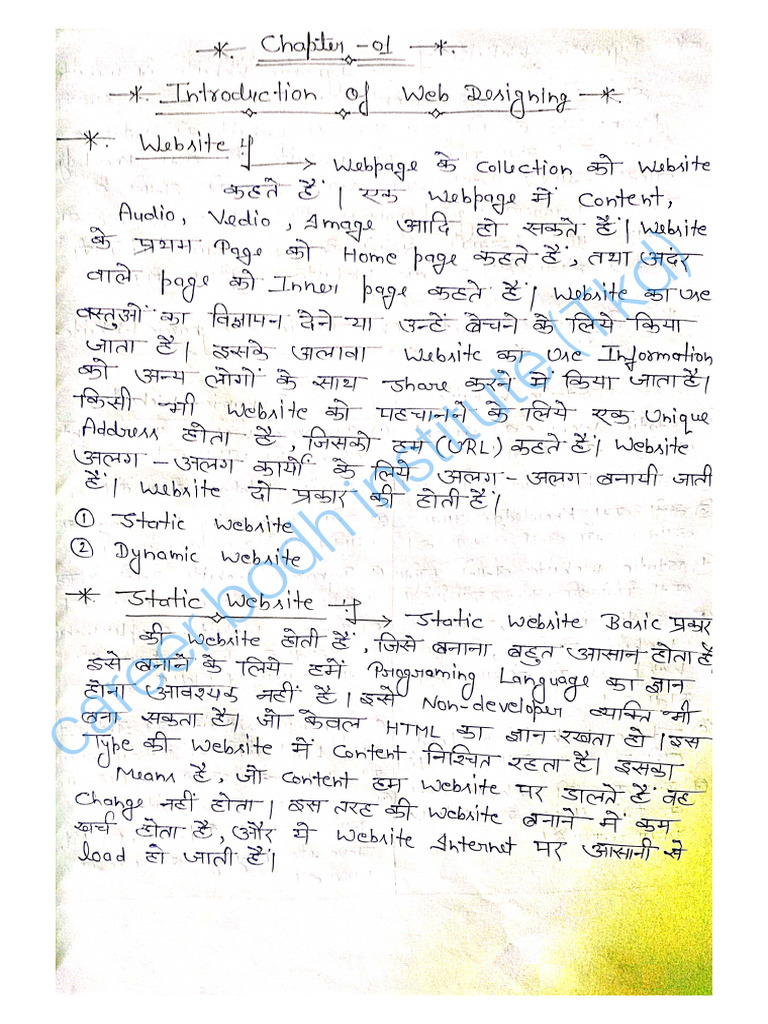 Chapter-01
Introduction of Web Designing
Website
Webpage के Collection को Website
कहते हैं। एक Webpage में Content,
Audio, Vedio, Image आदि हो सकते हैं। Website
के प्रथम Page को Home page कहते हैं, तथा अंदर
वाले page को Inner page कहते हैं। Website का Use
वस्तुओं का विज्ञापन देने या उन्हें बेचने के लिये किया
जाता है। इसके अलावा Website का Use Information
को अन्य लोगों के साथ Share करने में किया जाता है।
किसी भी Website को पहचानने के लिये एक Unique
Address होता है, जिसको हम (URL) कहते हैं। Website
अलग-अलग कार्यों के लिये अलग-अलग बनायी जाती
हैं। Website दो प्रकार की होती हैं।
① Static Website
② Dynamic Website
Static Website
Static Website Basic प्रकार
की Website होती हैं, जिसे बनाना बहुत आसान होता है
इसे बनाने के लिये हमें Programing Language का ज्ञान
होना आवश्यक नहीं है। इसे Non-developer व्यक्ति भी
बना सकता है। जो केवल HTML का ज्ञान रखता हो। इस
Type की Website में Content निश्चित रहता है। इसका
Means है, जो Content हम Website पर डालते हैं वह
Change नहीं होता। इस तरह की Website बनाने में कम
खर्च होता है, और ये Website Internet पर आसानी से
load हो जाती हैं।
career bodh institute (Tkd)